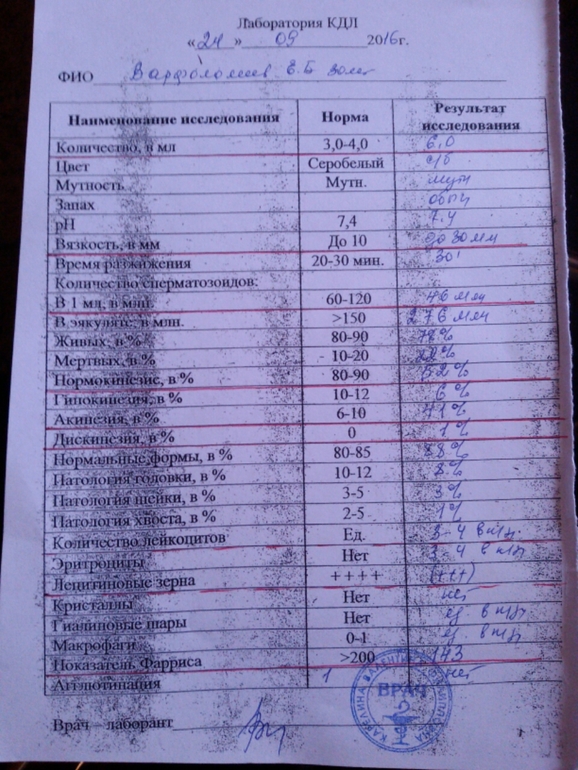 Лаборатория КДЛ
«24» 09 2016г.
ФИО Варфоломеев Е.Б
Наименование исследования Норма Результат исследования
Количество, в мл 3,0-4,0 6,0
Цвет Серобелый с/б
Мутность Мутн. мутн
Запах обыч
pH 7,4 7.4
Вязкость, в мм До 10 до 30 мм
Время разжижения 20-30 мин. 30'
Количество сперматозоидов:
В 1 мл, в млн. 60-120 46 млн
В эякуляте, в млн. >150 276 млн
Живых, в % 80-90 78%
Мертвых, в % 10-20 22%
Нормокинезис, в % 80-90 52%
Гипокинезия, в % 10-12 6%
Акинезия, в % 6-10 41%
Дискинезия, в % 0 1%
Нормальные формы, в % 80-85 88%
Патология головки, в % 10-12 8%
Патология шейки, в % 3-5 3%
Патология хвоста, в % 2-5 1%
Количество лейкоцитов Ед. 3-4 в п/з
Эритроциты Нет 3-4 в п/з
Лецитиновые зерна ++++ (+++)
Кристаллы Нет нет
Гиалиновые шары Нет ед. в п/з
Макрофаги 0-1 ед. в п/з
Показатель Фарриса >200 143
Агглютинация нет
Врач – лаборант
ВРАЧ